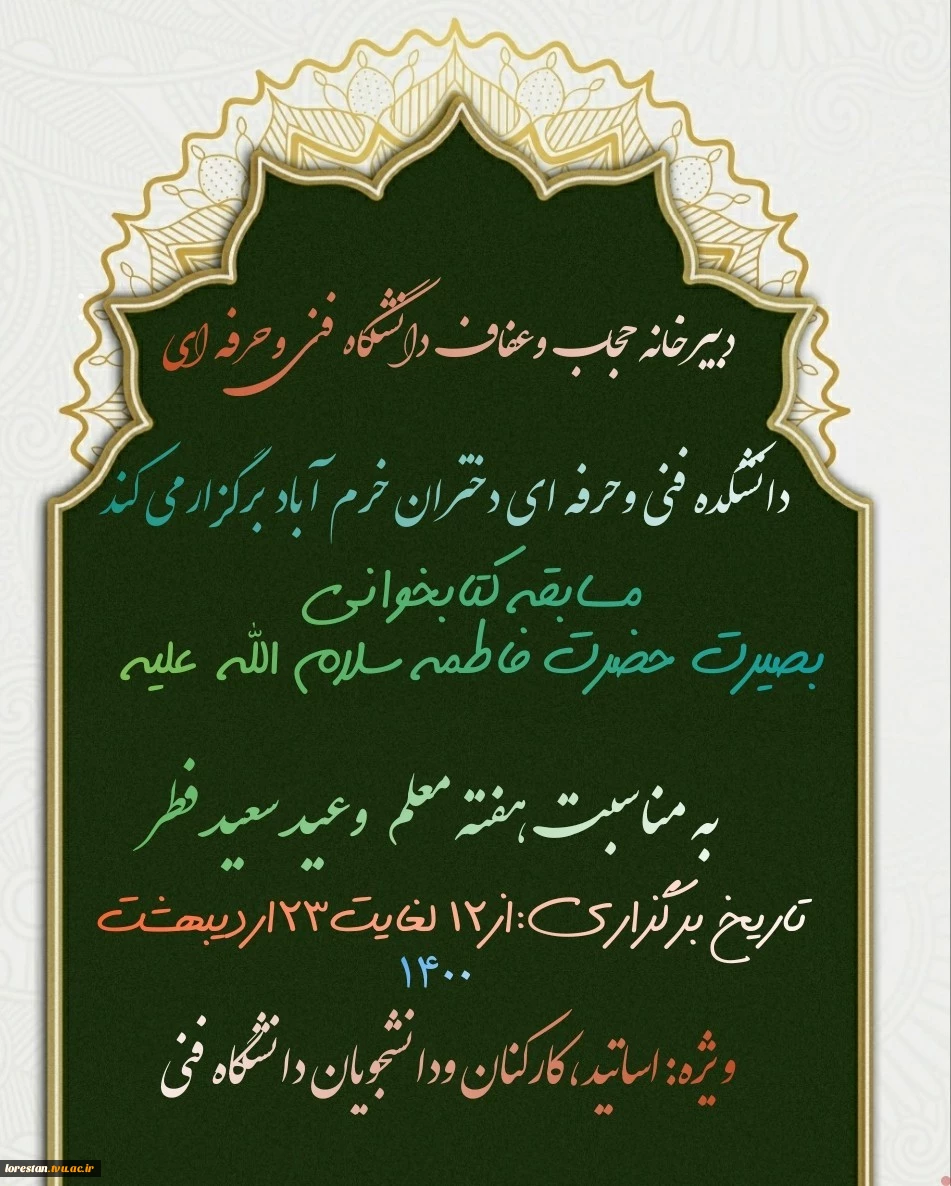 دبیرخانه حجاب وعفاف دانشگاه فنی و حرفه ای
دانشکده فنی و حرفه ای دختران خرم آباد برگزار می کند
مسابقه کتابخوانی
بصیرت حضرت فاطمه سلام الله علیه
به مناسبت هفته معلم وعید سعید فطر
تاریخ برگزاری:از۱۲ لغایت۲۳اردیبهشت
۱۴۰۰
ویژه: اساتید، کارکنان ودانشجویان دانشگاه فنی
lorestan.tvu.ac.ir